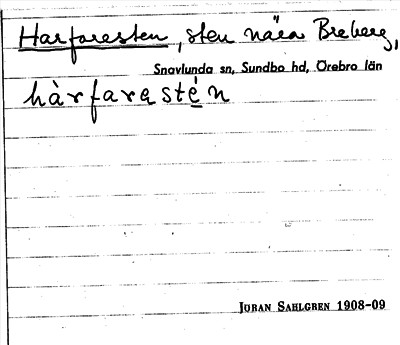 Harfaresten, sten nära Breberg,
Snavlunda sn, Sundbo hd, Örebro län
hàrfarastén
JÖRAN SAHLGREN 1908-09